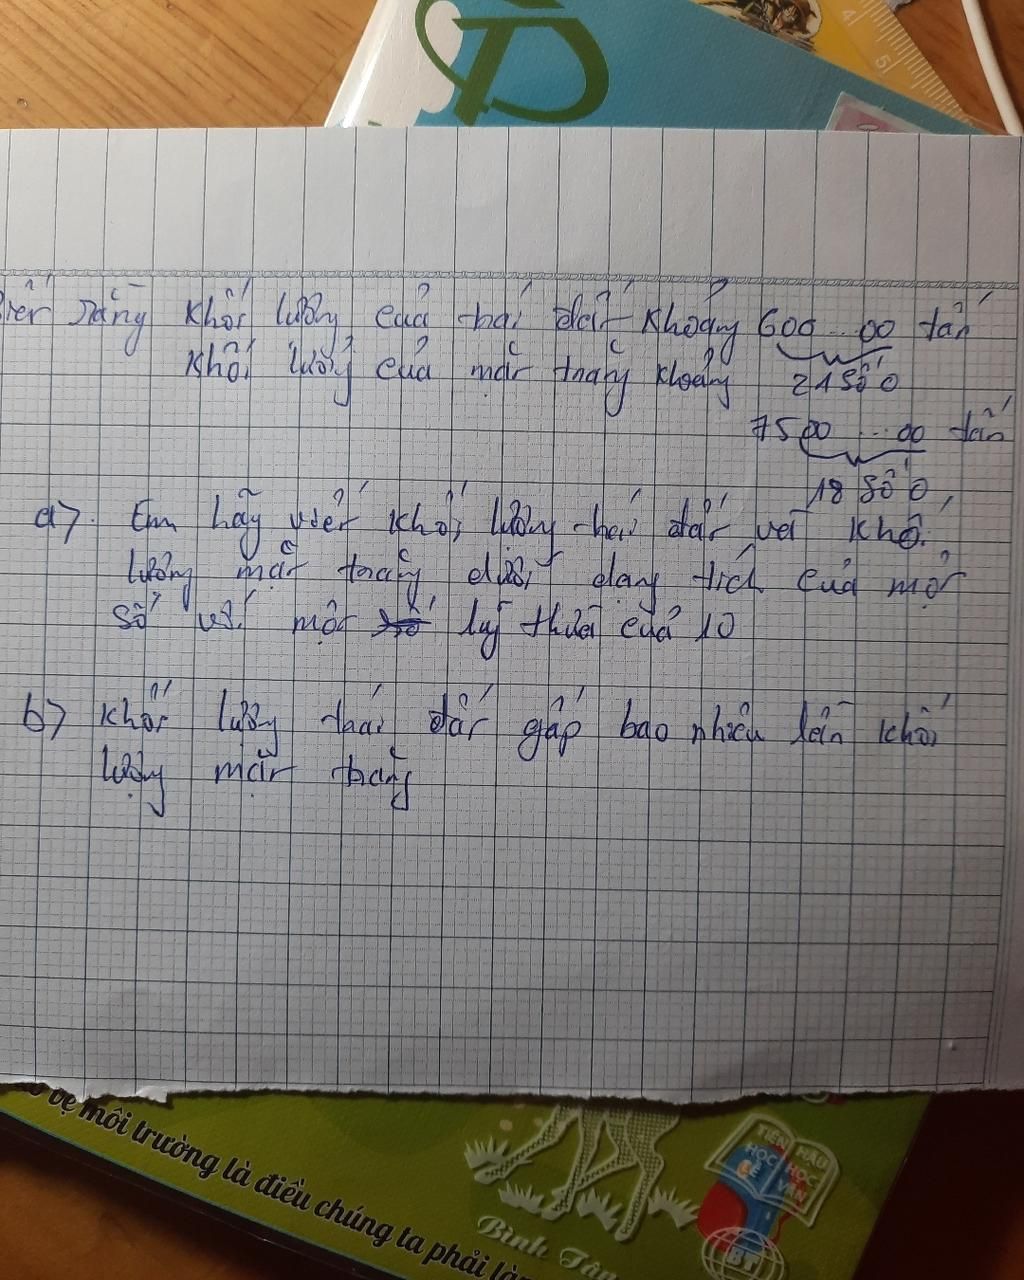 Biết rằng khối lượng của trái đất khoảng 600...00 tấn
khối lượng của mặt trăng khoảng 21 số 0
7500...00 tấn
18 số 0,
a). Em hãy viết khối lượng trái đất với khối
lượng mặt trăng dưới dạng tích của một
số với một lũy thừa của 10
b) khối lượng trái đất gấp bao nhiêu lần khối
lượng mặt trăng
vệ môi trường là điều chúng ta phải
TIÊN HỌC LỄ
HẬU HỌC VĂN
BT
Bình Tân